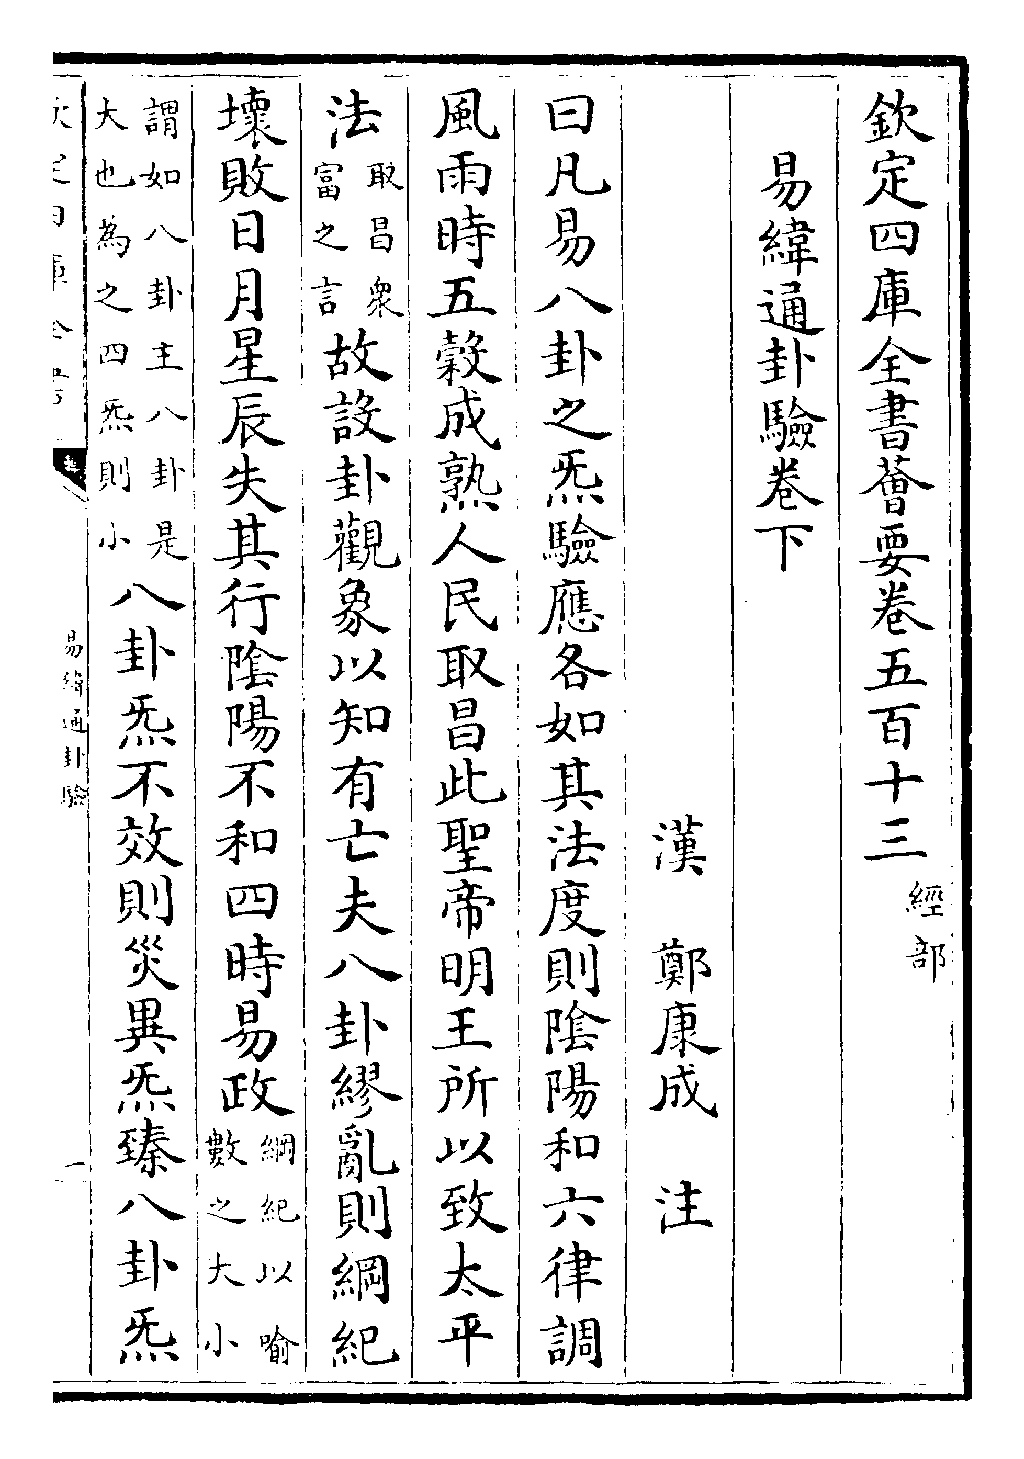 欽定四庫全書薈要卷五百十三經部
易緯通卦驗卷下
漢鄭康成注
曰凡易八卦之炁驗應各如其法度則陰陽和六律調
風雨時五穀成熟人民取昌此聖帝明王所以致太平
法取昌衆富之言故設卦觀象以知有亡夫八卦繆亂則綱紀
壞敗日月星辰失其行陰陽不和四時易政綱紀以喻數之大小
謂如八卦主八卦是大也為之四炁則小八卦炁不效則災異炁臻八卦炁
易緯通卦驗
一